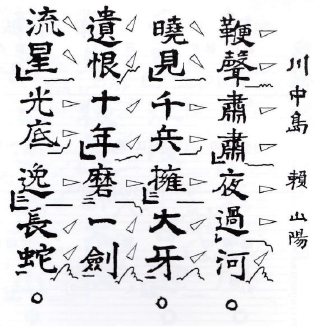 川中島 頼山陽
鞭聲肅肅夜過河
曉見千兵擁大牙
遺恨十年磨一劍
流星光底逸長蛇